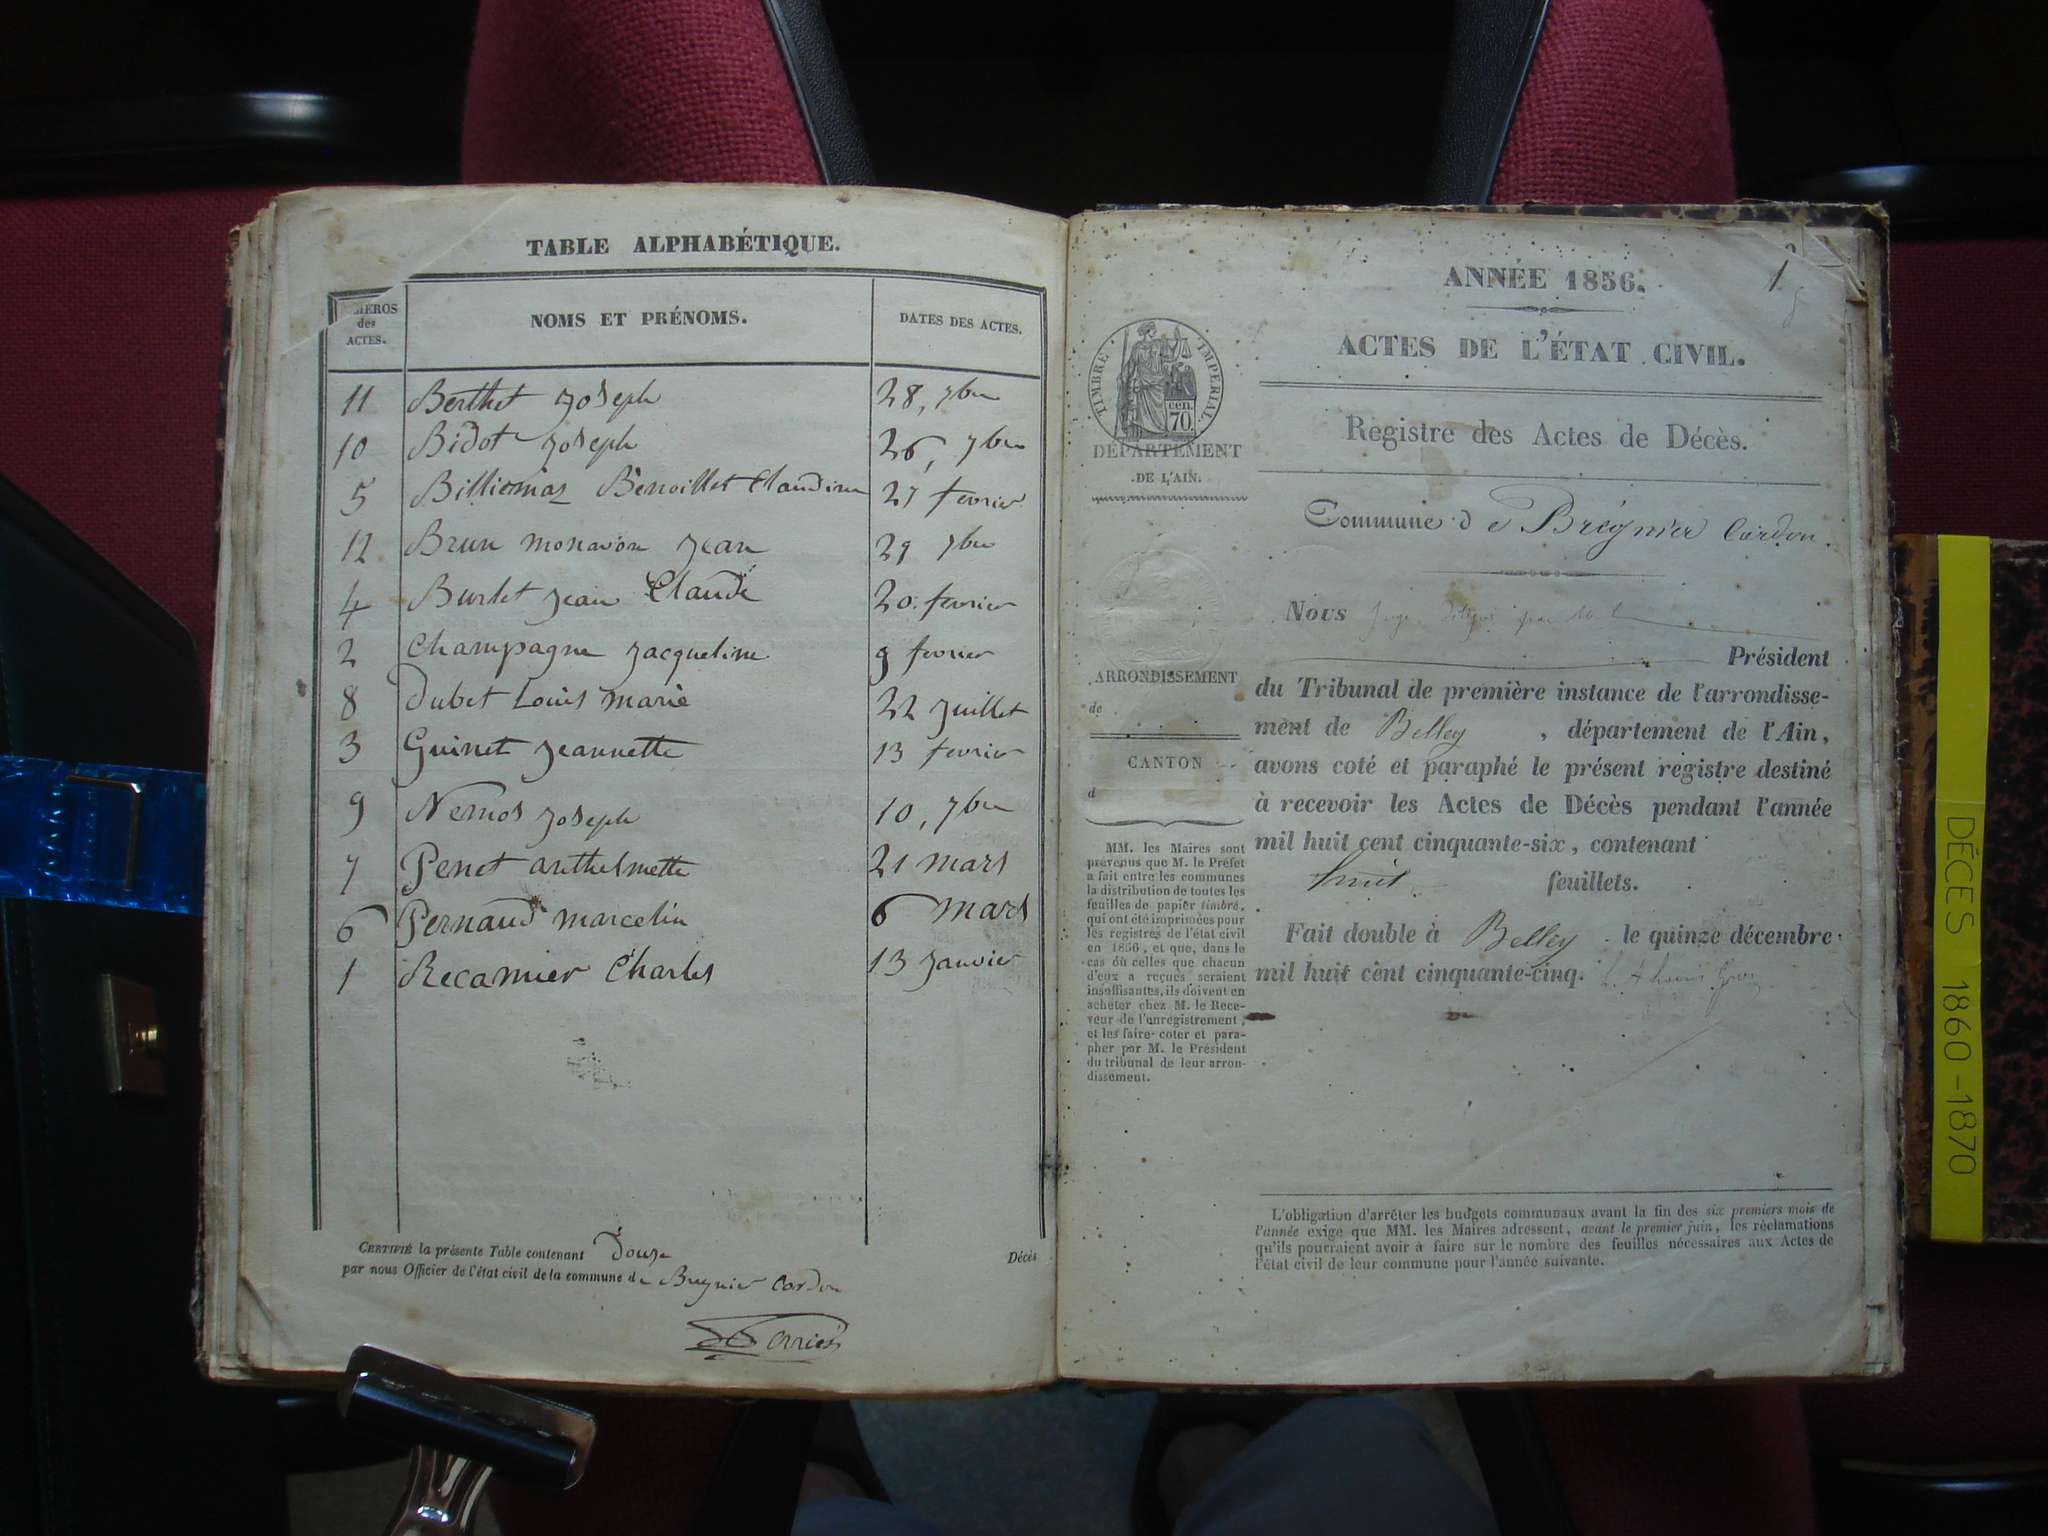 TABLE ALPHABÉTIQUE.
MÉROS des ACTES.
NOMS ET PRÉNOMS.
DATES DES ACTES.
11 Berthet Joseph 28, 7bre
10 Bidot Joseph 26, 7bre
5 Billiemaz Benoillet Claudine 27 fevrier
12 Brun monavon Jean 29 7bre
4 Burlet Jean Claude 20. fevrier
2 Champagne Jacqueline 9 fevrier
8 Dubet Louis marie 22 Juillet
3 Guinet Jeannette 13 fevrier
9 Nemos Joseph 10, 7bre
7 Penet anthelmette 21 mars
6 Pernaud marcelin 6 mars
1 Recamier Charles 13 Janvier
CERTIFIÉ la présente Table contenant Douze Décès
par nous Officier de l'état civil de la commune de Bregnier Cordon
ANNÉE 1856.
1
ACTES DE L'ÉTAT CIVIL.
TIMBRE IMPERIAL
70 cen.
DÉPARTEMENT
DE L'AIN.
Registre des Actes de Décès.
Commune de Brégnier Cordon.
Nous Juge délégué par
Président
du Tribunal de première instance de l'arrondisse-
ment de Belley, département de l'Ain,
avons coté et paraphé le présent registre destiné
à recevoir les Actes de Décès pendant l'année
mil huit cent cinquante-six, contenant
huit feuillets.
Fait double à Belley le quinze décembre
mil huit cent cinquante-cinq.
ARRONDISSEMENT
de
CANTON
d
MM. les Maires sont
prévenus que M. le Préfet
a fait entre les communes
la distribution de toutes les
feuilles de papier timbré,
qui ont été imprimées pour
les registres de l'état civil
en 1856, et que, dans le
cas où celles que chacun
d'eux a reçues seraient
insuffisantes, ils doivent en
acheter chez M. le Rece-
veur de l'enregistrement,
et les faire coter et para-
pher par M. le Président
du tribunal de leur arron-
dissement.
L'obligation d'arrêter les budgets communaux avant la fin des six premiers mois de
l'année exige que MM. les Maires adressent, avant le premier juin, les réclamations
qu'ils pourraient avoir à faire sur le nombre des feuilles nécessaires aux Actes de
l'état civil de leur commune pour l'année suivante.
DÉCES 1860-1870